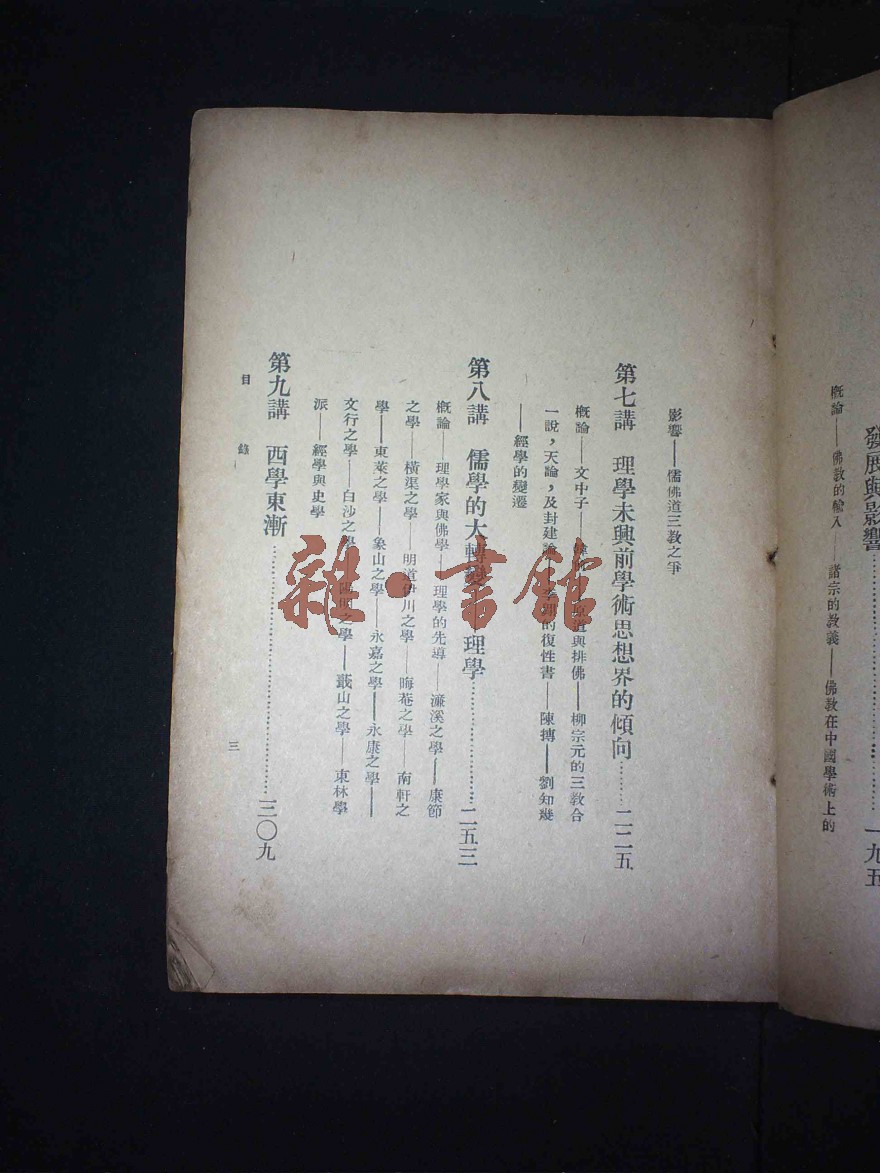 發展與影響…………一九五
概論——佛教的輸入——諸宗的教義——佛教在中國學術上的
影響——儒佛道三教之爭
第七講　理學未興前學術思想界的傾向……二二五
概論——文中子——原道與排佛——柳宗元的三教合
一說，天論，及封建論——的復性書——陳摶——劉知幾
——經學的變遷
第八講　儒學的大轉——理學…………二五三
概論——理學家與佛學——理學的先導——濂溪之學——康節
之學——橫渠之學——明道伊川之學——晦菴之學——南軒之
學——東萊之學——象山之學——永嘉之學——永康之學——
文行之學——白沙之學——之學——蕺山之學——東林學
派——經學與史學
第九講　西學東漸…………三〇九
目錄
三
雜·書館